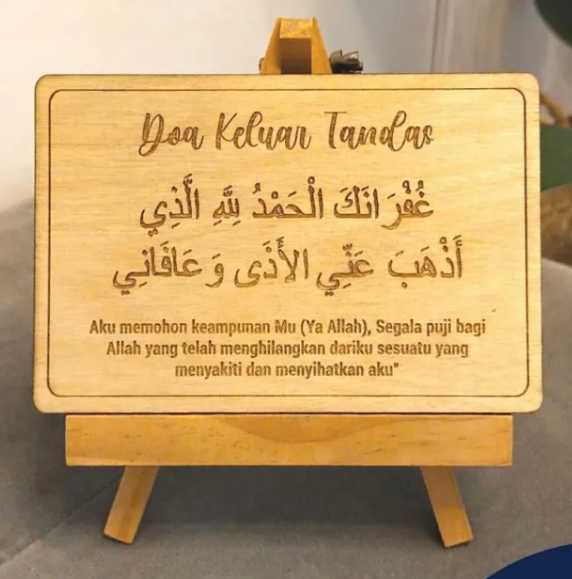 Doa Keluar Tandas
غُفْرَانَكَ الْحَمْدُ لِلَّهِ الَّذِي
أَذْهَبَ عَنِّي الأَذَى وَعَافَانِي
Aku memohon keampunan Mu (Ya Allah), Segala puji bagi
Allah yang telah menghilangkan dariku sesuatu yang
menyakiti dan menyihatkan aku"